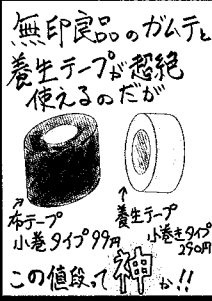 無印良品のガムテと
養生テープが超絶
使えるのだが
↗
布テープ
小巻タイプ99円
↑
養生テープ
小巻きタイプ
290円
この値段って神か!!